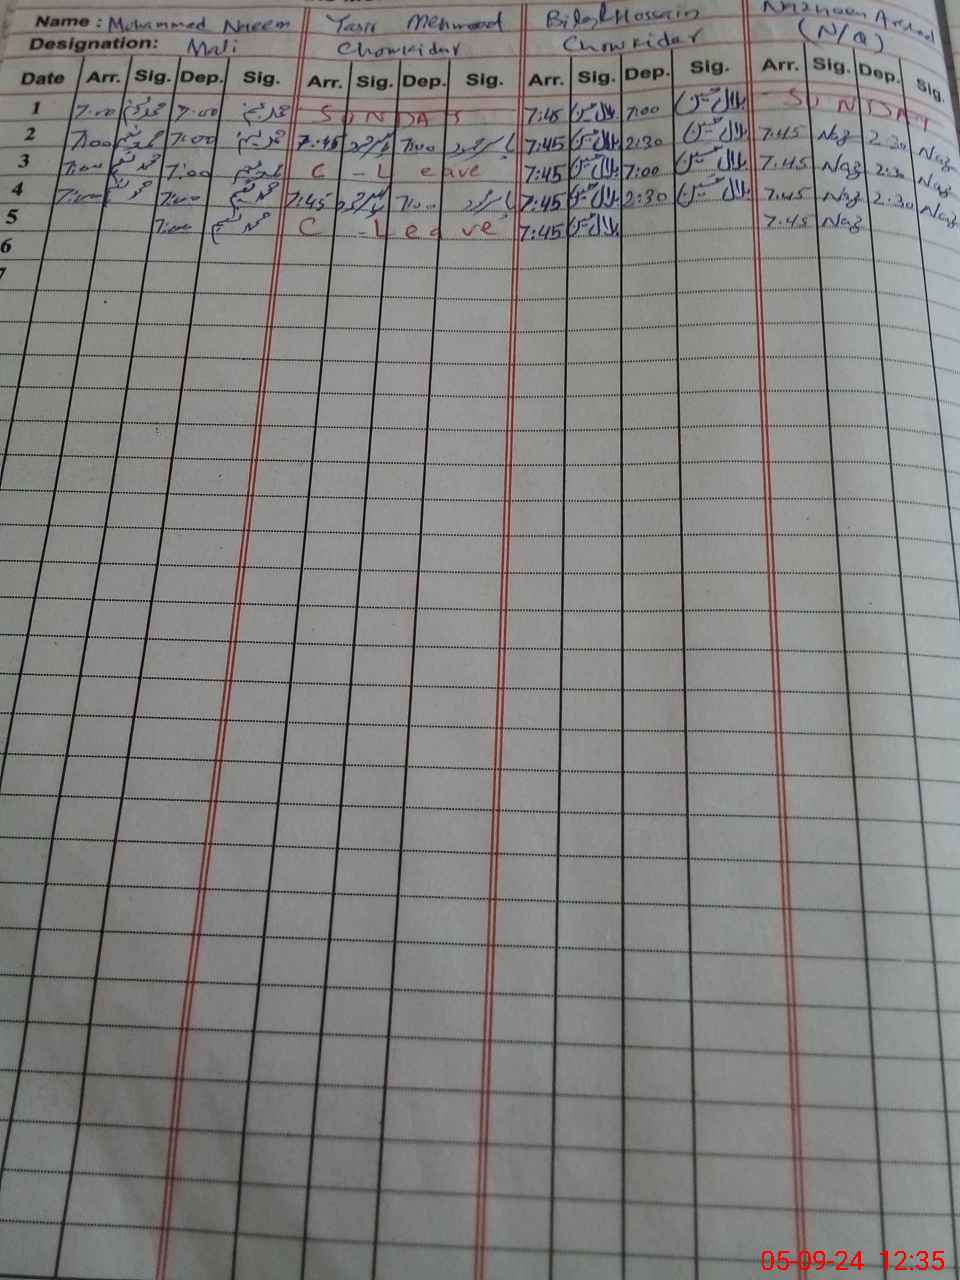 Name : Mohammed Naeem Yasir Mehmood Bilal Hossain
Designation: Mali Chowkidar Chowkidar (N/Q)
Date Arr. Sig. Dep. Sig. Arr. Sig. Dep. Sig. Arr. Sig. Dep. Sig. Arr. Sig. Dep. Sig.
1 7:00 محمد نعیم 7:00 محمد نعیم SUNDAY 7:45 بلال حسین 7:00 بلال حسین SUNDAY
2 7:00 محمد نعیم 7:00 محمد نعیم 7:45 7:00 7:45 بلال حسین 2:30 بلال حسین 7:45 Naz 2:30 Naz
3 7:00 محمد نعیم 7:00 محمد نعیم C - Leave 7:45 بلال حسین 7:00 بلال حسین 7:45 Naz 2:30 Naz
4 7:00 محمد نعیم 7:00 محمد نعیم 7:45 7:00 7:45 بلال حسین 2:30 بلال حسین 7:45 Naz 2:30 Naz
5 7:00 محمد نعیم C - Leave 7:45 بلال حسین 7:45 Naz
6
7
05-09-24 12:35